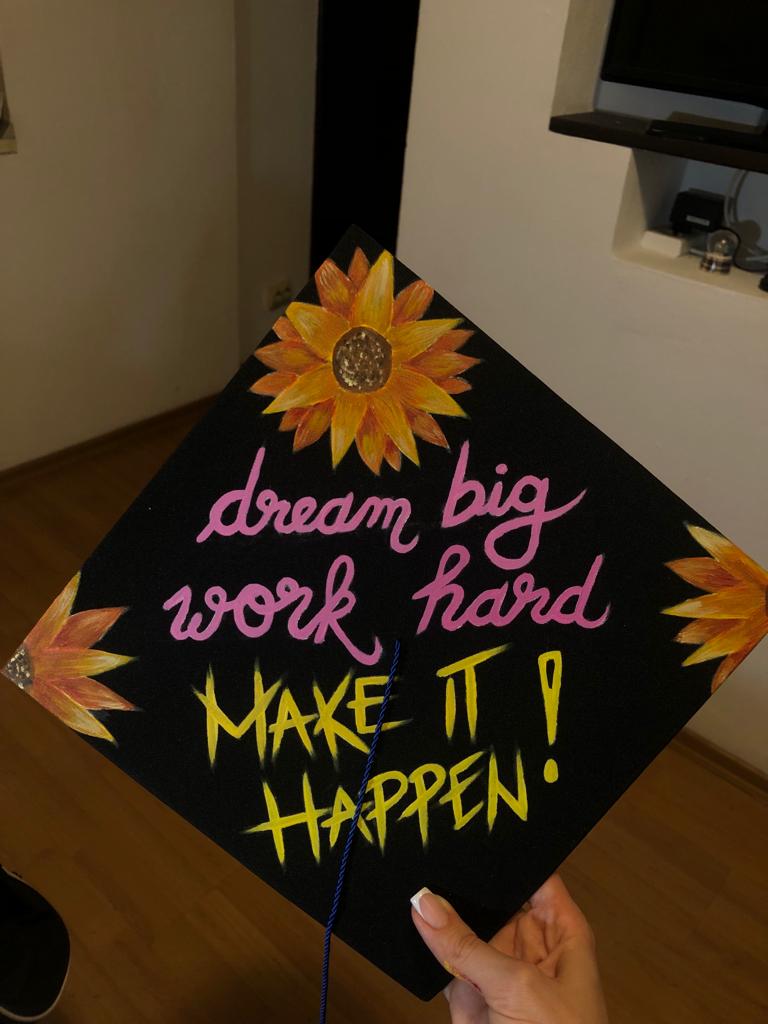 dream big
work hard
MAKE IT!
HAPPEN